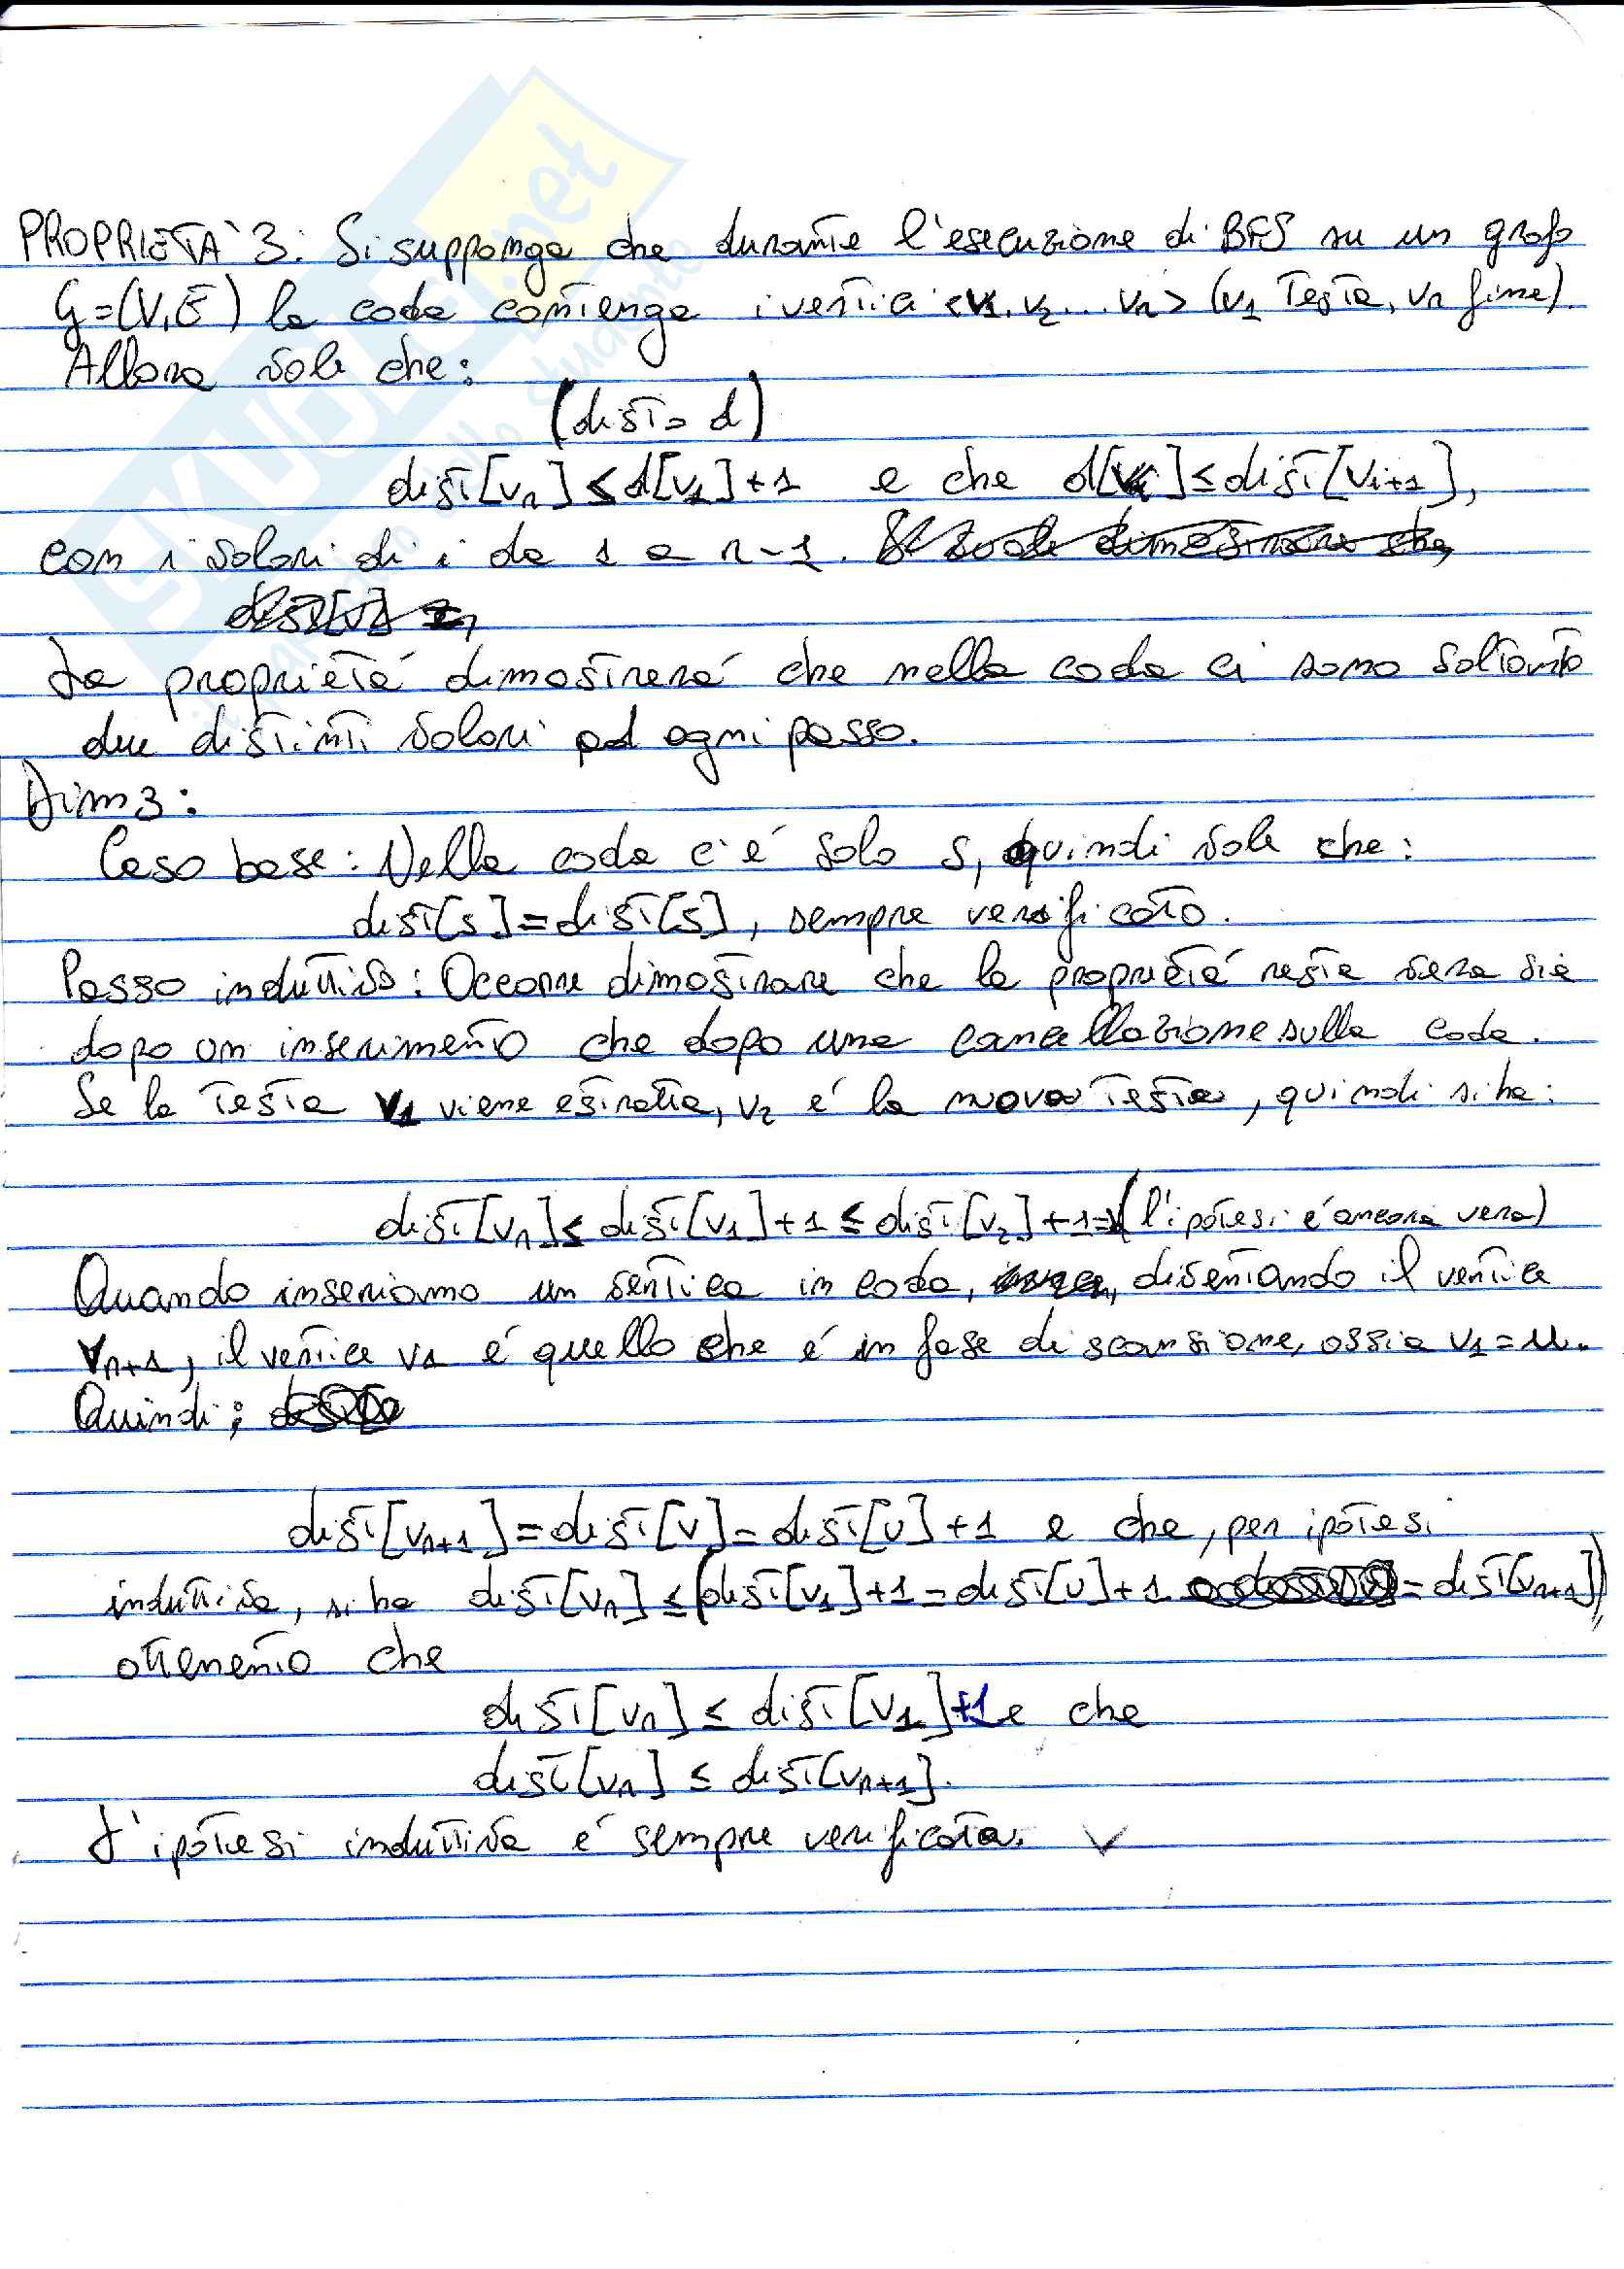 PROPRIETA' 3: Si supponga che durante l'esecuzione di BFS su un grafo
G=(V,E) la coda contenga i vertici <v1, v2 ... vr> (v1 Testa, vr fine).
Allora vale che:
(dist = d)
dist[vr] ≤ d[v1]+1 e che d[vi] ≤ dist[vi+1],
con i valori di i da 1 a r-1. Si vuole dimostrare che,
La proprietá dimostrerá che nella coda ci sono soltanto
due distinti valori ad ogni passo.
Dim 3:
Caso base: Nella coda c'é solo s, quindi vale che:
dist[s]=dist[s], sempre verificato.
Passo induttivo: Occorre dimostrare che la proprietá resta vera sia
dopo un inserimento che dopo una cancellazione sulla coda.
Se la Testa v1 viene estratta, v2 é la nuova Testa, quindi si ha:
dist[vr] ≤ dist[v1]+1 ≤ dist[v2]+1 => (l'ipotesi é ancora vera)
Quando inseriamo un vertice in coda, diventando il vertice
vr+1, il vertice v1 é quello che é in fase di scansione, ossia v1=u.
Quindi;
dist[vr+1]=dist[v]=dist[u]+1 e che, per ipotesi
induttiva, si ha dist[vr] ≤ (dist[v1]+1=dist[u]+1 =dist[vr+1])
ottenento che
dist[vr] ≤ dist[v1]+1 e che
dist[vr] ≤ dist[vr+1].
L'ipotesi induttiva é sempre verificata.
SKUOLA.net